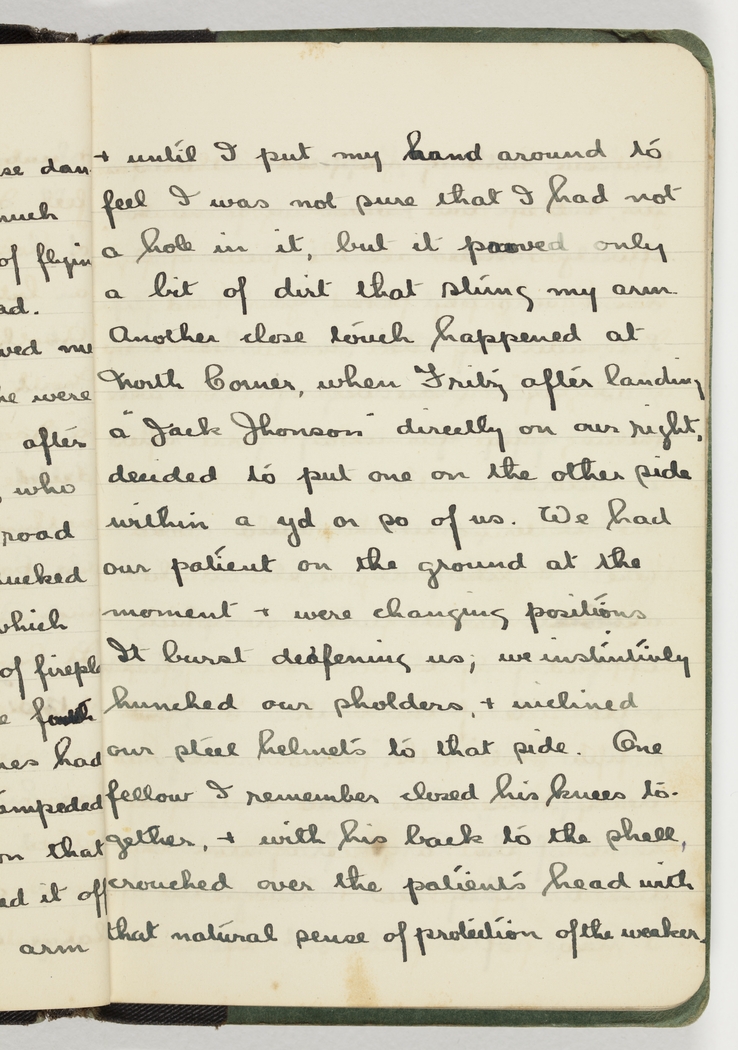 se dan
much
of flyin
ad.
ved me
he were
after
, who
road
ucked
which
of firepla
e fourth
nes had
tempeded
on that
ed it off
arm
+ until I put my hand around to
feel I was not sure that I had not
a hole in it, but it prooved only
a bit of dirt that stung my arm.
Another close touch happened at
North Corner, when Fritz after landing
a "Jack Jhonson" directly on our right,
decided to put one on the other side
within a yd or so of us. We had
our patient on the ground at the
moment + were changing positions
It burst deafening us; we instintivly
hunched our sholders, + inclined
our steel helmets to that side. One
fellow I remember closed his knees to-
gether, + with his back to the shell,
crouched over the patients head with
that natural sense of protection of the weaker.